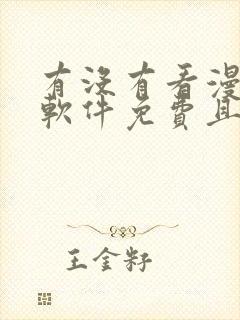 有没有看漫
軟件免費且
王金籽